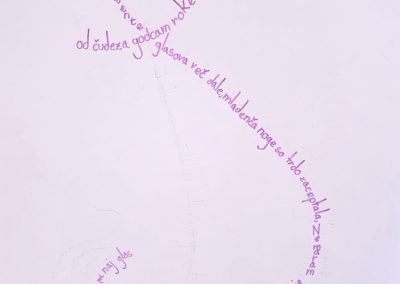 od čudeza godcam roke
glasova več dale, mladenča noge so trdo zaceptala,
naj glas